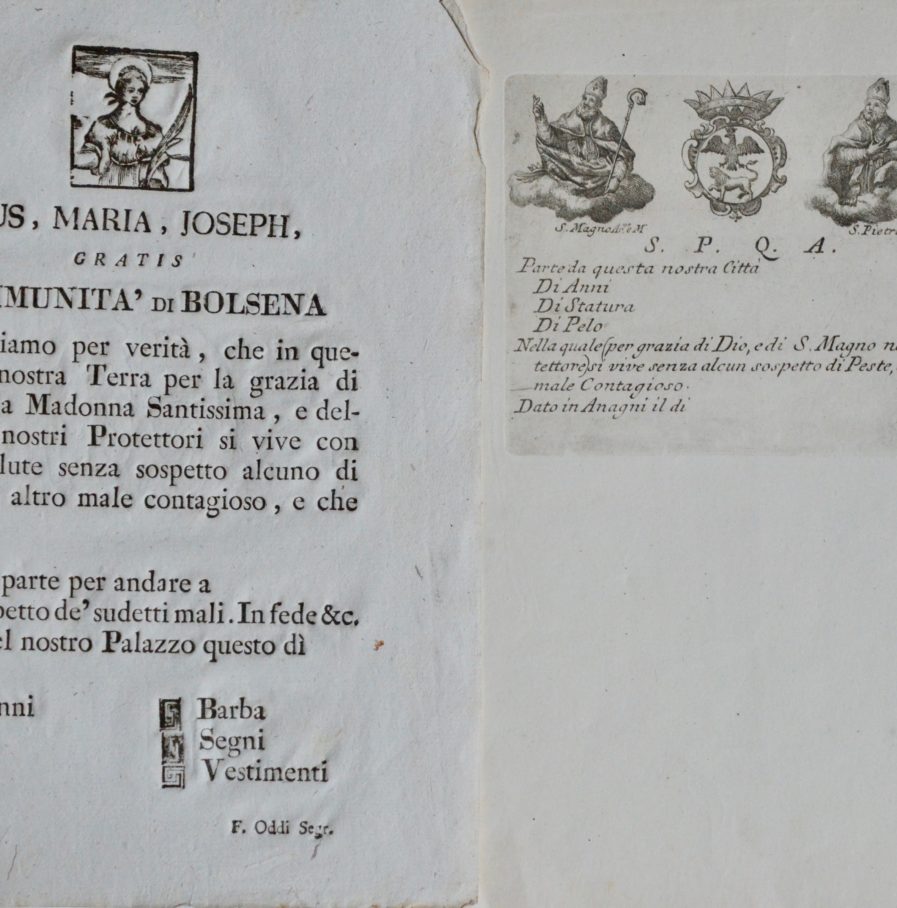 US, MARIA, JOSEPH,
GRATIS
MUNITA' DI BOLSENA
iamo per verità, che in que-
nostra Terra per la grazia di
a Madonna Santissima, e del-
nostri Protettori si vive con
lute senza sospetto alcuno di
altro male contagioso, e che
parte per andare a
petto de' sudetti mali. In fede &c.
el nostro Palazzo questo dì
nni
Barba
Segni
Vestimenti
F. Oddi Segr.
S. Magno M
S. Pietro
S. P. Q. A.
Parte da questa nostra Città
Di Anni
Di Statura
Di Pelo
Nella quale (per grazia di Dio, e di S. Magno n
tettore) si vive senza alcun sospetto di Peste,
male Contagioso.
Dato in Anagni il di